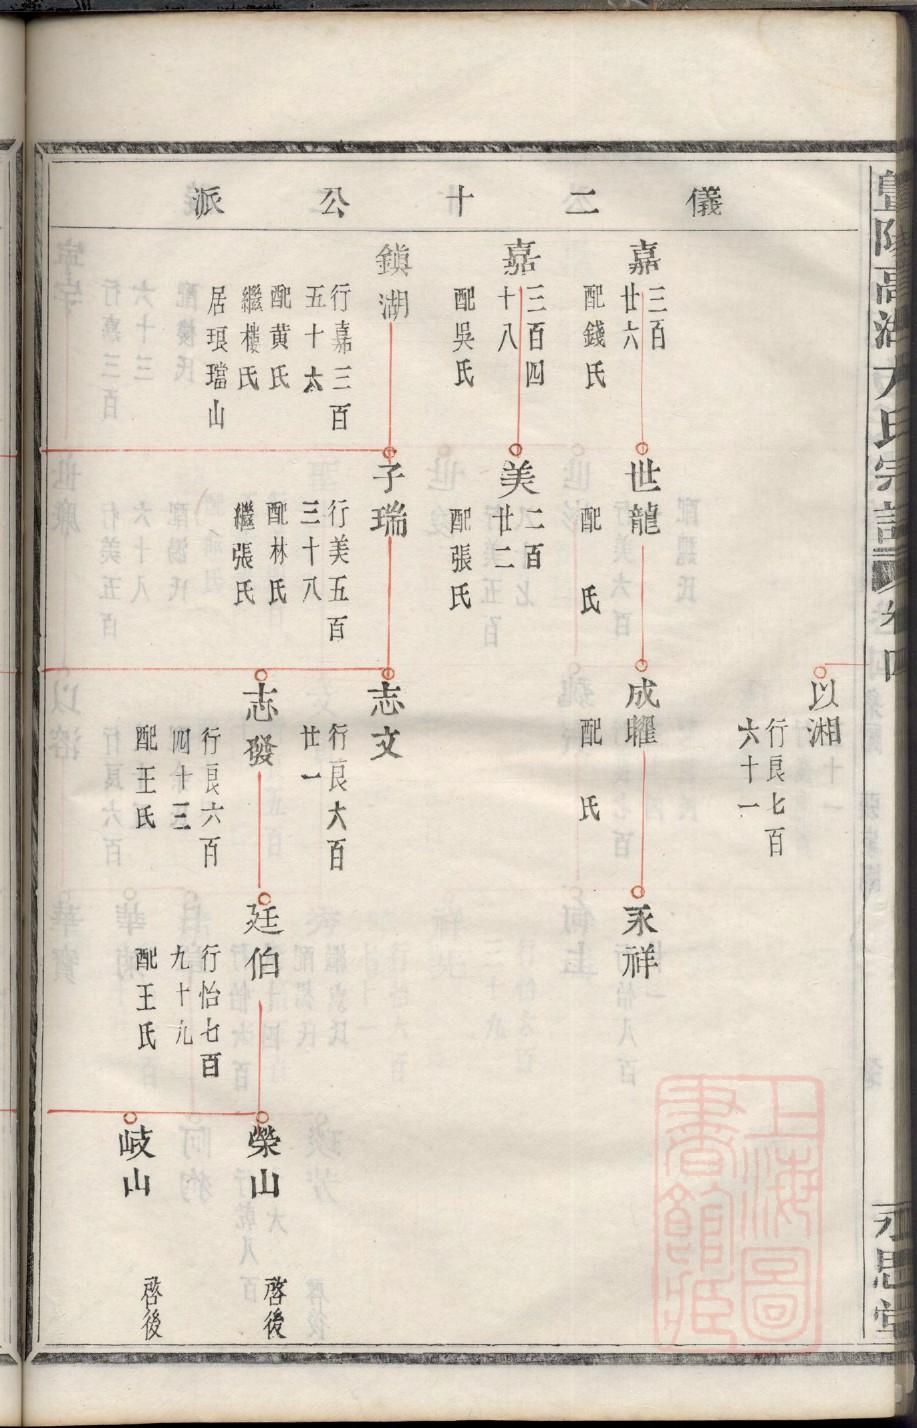 儀二十公派
以湘
行良七百
六十一
嘉
三百
廿六
配錢氏
世龍
配 氏
成㬢
配 氏
永祥
嘉
三百四
十八
配吳氏
美
二百
廿二
配張氏
鎮湖
行嘉三百
五十六
配黄氏
繼樓氏
居琅璫山
子瑞
行美五百
三十八
配林氏
繼張氏
志文
行良六百
廿一
志發
行良六百
四十三
配王氏
廷伯
行怡七百
九十九
配王氏
榮山
啓後
岐山
啓後
宗譜
卷四
永思堂
上海圖
書館藏